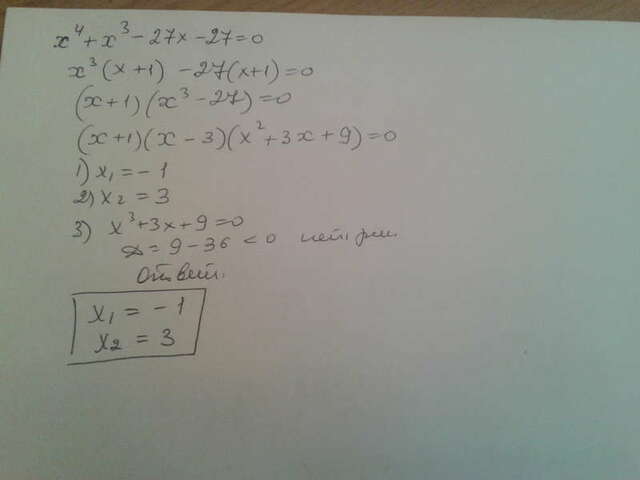 x⁴+x³-27x-27=0
x³(x+1) -27(x+1)=0
(x+1)(x³-27)=0
(x+1)(x-3)(x²+3x+9)=0
1) x₁=-1
2) x₂=3
3) x³+3x+9=0
D=9-36<0 нет
Ответ.
x₁ = -1
x₂ = 3